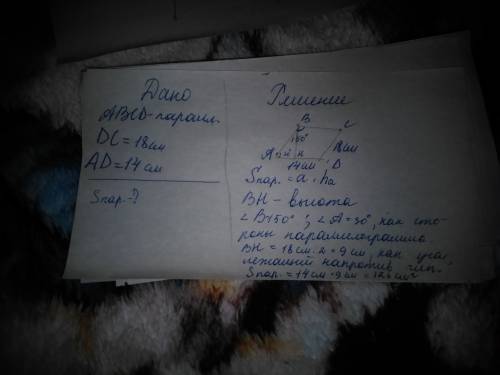 Дано
ABCD-паралл.
DC = 18см
AD = 14см
Sпар-?
Решение
B
C
150°
A
H
14см
D
Sпар. = a · ha
BH - высота
∠B150°; ∠A=30°, как сто-
роны параллелограмма
BH = 18см : 2 = 9см, как
лежащий напротив
Sпар. = 14см · 9см = 126см²